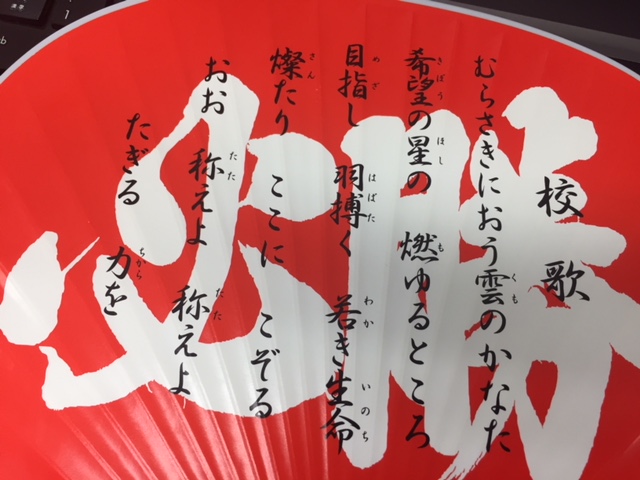 必勝
校歌
むらさきにおう雲のかなた
希望の星の 燃ゆるところ
目指し 羽搏く 若き生命
燦たり ここに こぞる
おお 称えよ 称えよ
たぎる 力を